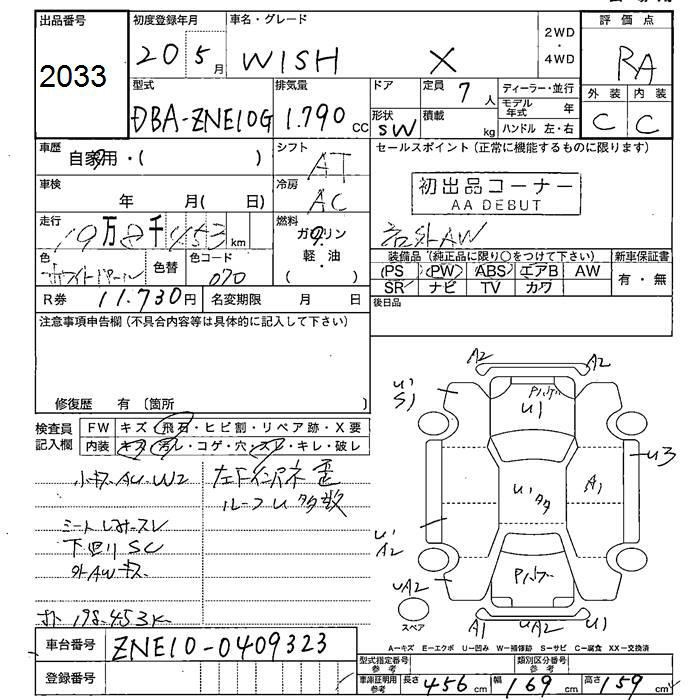 出品番号
2033
初度登録年月
20 5月
車名・グレード
WISH X
2WD
・
4WD
評価点
RA
外装 内装
C C
型式
DBA-ZNE10G
排気量
1.790 CC
ドア
形状
SW
定員
7 人
積載
kg
ディーラー・並行
モデル年式 年
ハンドル 左・右
車歴
自家用・( )
シフト
AT
セールスポイント (正常に機能するものに限ります)
初出品コーナー
AA DEBUT
社外AW
車検
年 月( 日)
冷房
AC
走行
19万8千453km
燃料
ガソリン
・
軽・油
( )
色
ホワイトパール
色替
色コード
070
装備品 (純正品に限り○をつけて下さい)
PS PW ABS エアB AW
SR ナビ TV カワ
新車保証書
有・無
R券 11.730円
名変期限 月 日
後日品
注意事項申告欄(不具合内容等は具体的に記入して下さい)
修復歴 有 〔箇所 〕
検査員記入欄
FW キズ・飛石・ヒビ割・リペア跡・X要
内装 キズ・汚レ・コゲ・穴・スレ・キレ・破レ
小キズ AU・W2
左ドインパネ歪
ルーフU多数
シートしみ・スレ
下回りSC
外AWキズ
198.453K
A2 A2
U1
S1
U1
U3
A1
U1
A2
UA2
A1 UA2 U1
スペア
A=キズ E=エクボ U=凹み W=補修跡 S=サビ C=腐食 XX=交換済
車台番号 ZNE10-0409323
登録番号
型式指定番号 参考
類別区分番号 参考
車庫証明用 参考
長さ 456cm 幅 169cm 高さ 159cm